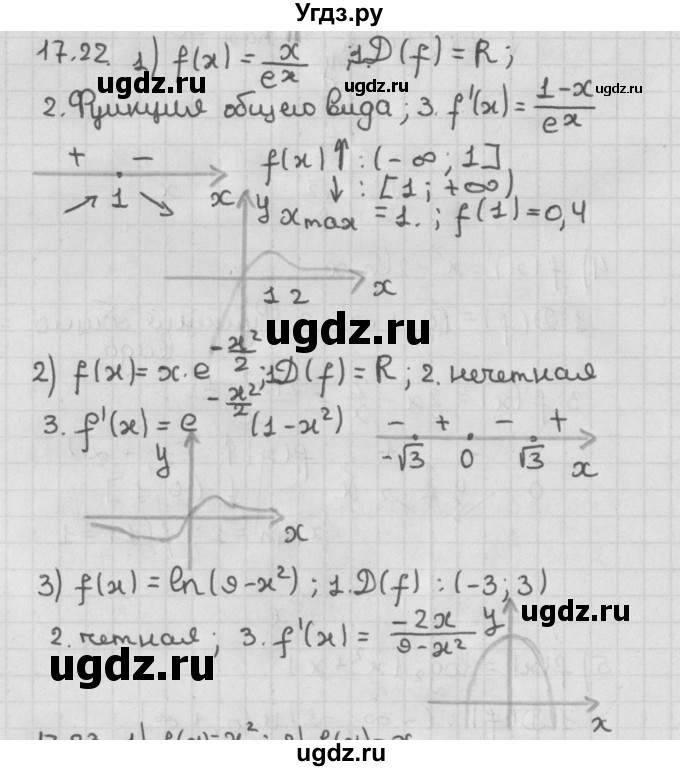 Угдз.ру
17.22. 1) f(x) = x/e^x ; 1.D(f) = R ;
ugdz.ru ugdz.ru
2. Функция общего вида ; 3. f'(x) = (1-x)/e^x
+ − f(x) ↑ : (-∞ ; 1]
1 x ↓ : [1 ; +∞)
y x max = 1. ; f(1) = 0,4
1 2 x
ugdz.ru
2) f(x) = x·e^(-x²/2) ; 1D(f) = R ; 2. нечетная
3. f'(x) = e^(-x²/2) (1-x²) − + − +
-√3 0 √3 x
y
x
3) f(x) = ln(9-x²) ; 1.D(f) : (-3 ; 3)
ugdz.ru
2. четная ; 3. f'(x) = -2x/(9-x²) y
ugdz.ru
x
17.23. 1) f(x) = x² ; 2) f(x) = x
ugdz.ru